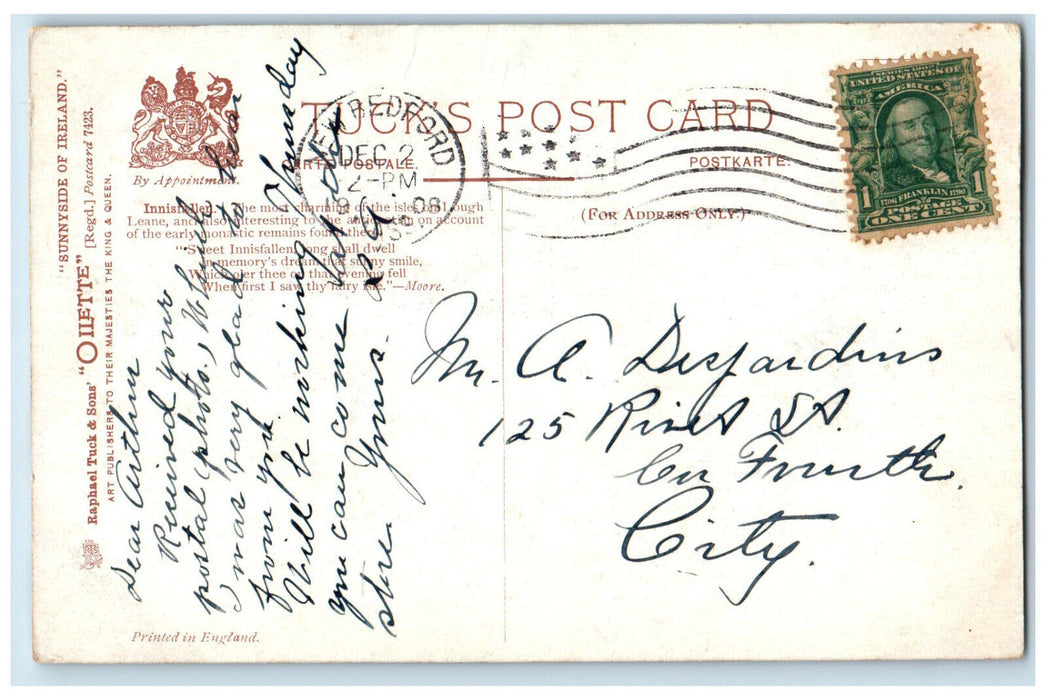 "SUNNYSIDE OF IRELAND."
Raphael Tuck & Sons' "OILETTE" [Regd.] Postcard 7423.
ART PUBLISHERS TO THEIR MAJESTIES THE KING & QUEEN.
By Appointment.
TUCK'S POST CARD
CARTE POSTALE.
POSTKARTE.
(FOR ADDRESS ONLY.)
NEW BEDFORD
DEC 2
2-PM
1908
MASS.
UNITED STATES OF
AMERICA
1796 FRANKLIN 1790
POSTAGE
1 ONE CENT 1
Innisfallen. The most charming of the isles of Lough
Leane, and also interesting to the antiquary on account
of the early monastic remains found there.
"Sweet Innisfallen, long shall dwell
In memory's dream that sunny smile,
Which o'er thee on that evening fell
When first I saw thy fairy isle."—Moore.
Dear Arthur
Received your
postal (photo), which
I was very glad to hear
from you.
Will be working Sunday
you can come up to the
store Yours
Mr. A. Desjardins
125 Rivet St.
Cor Fourth.
City.
Printed in England.